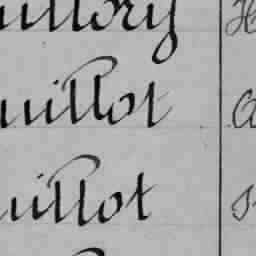 uillory
uillot
uillot